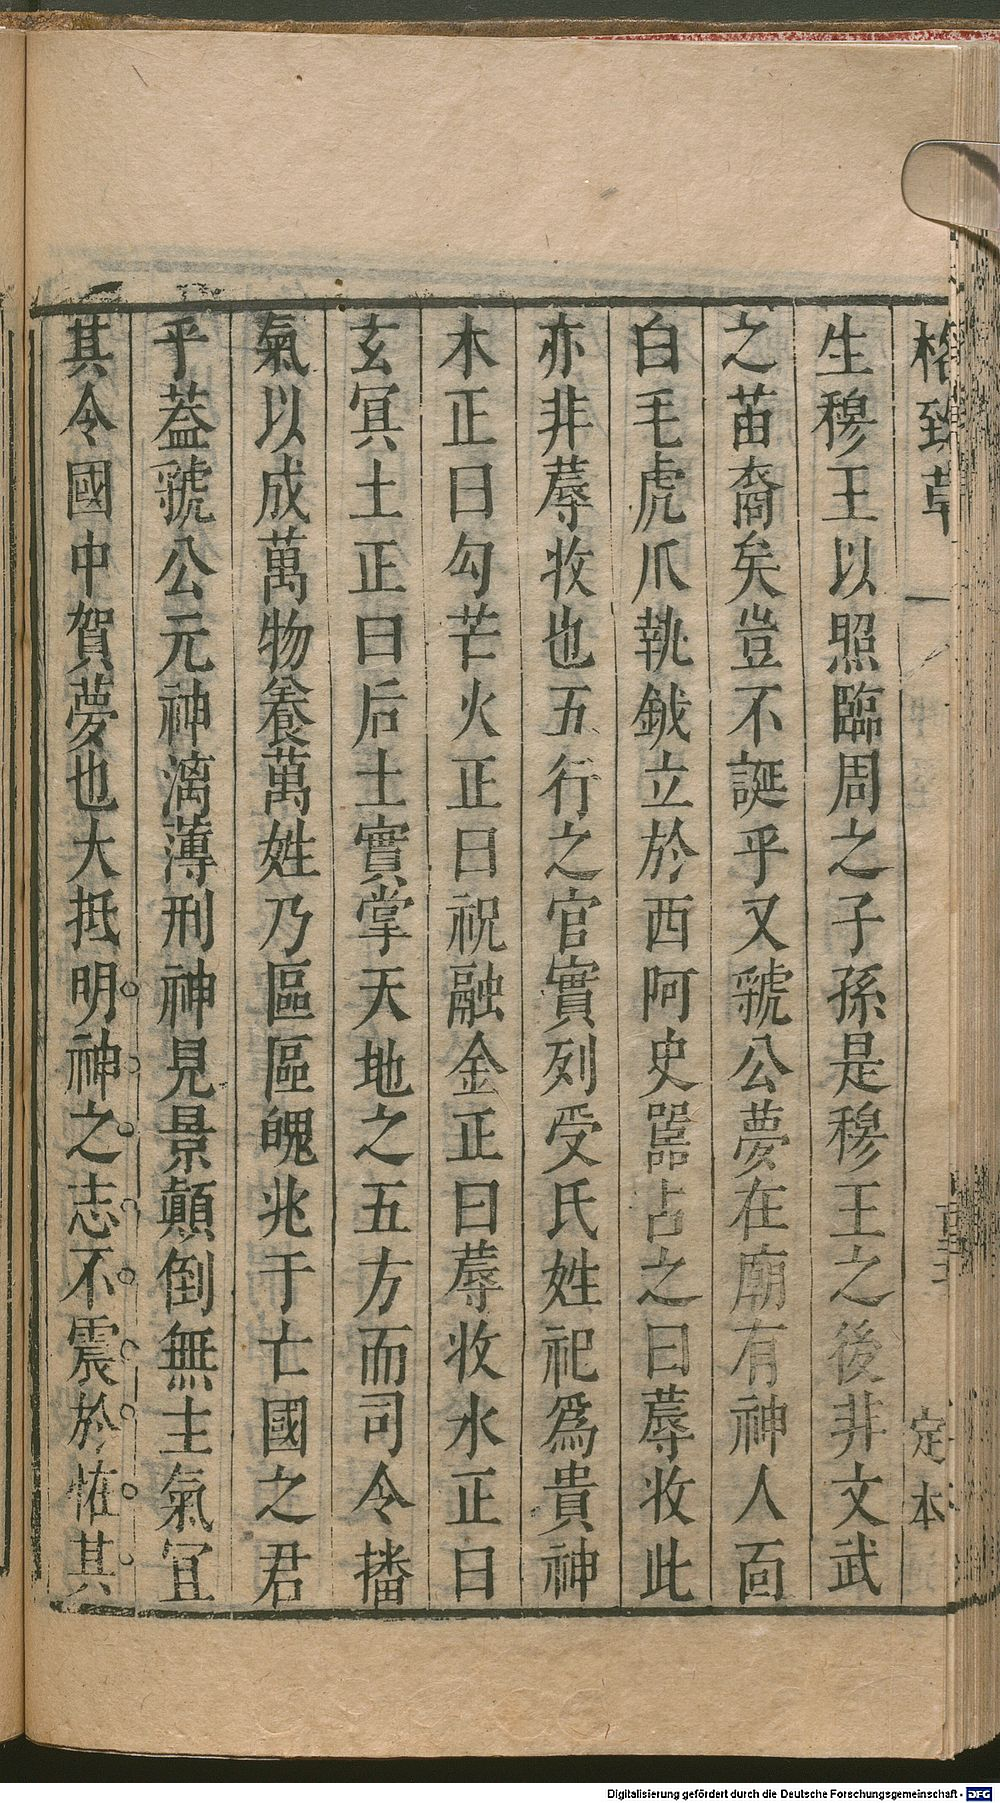 格致草
定本
生穆王以照臨周之子孫是穆王之後非文武
之苗裔矣豈不誕乎又虢公夢在廟有神人面
白毛虎爪執鉞立於西阿史嚚占之曰蓐收此
亦非蓐收也五行之官實列受氏姓祀爲貴神
木正曰勾芒火正曰祝融金正曰蓐收水正曰
玄冥土正曰后土實掌天地之五方而司令播
氣以成萬物養萬姓乃區區魄兆于亡國之君
乎葢虢公元神漓薄刑神見景顛倒無主氣冝
其令國中賀夢也大抵明神之志不震於怪其
Digitalisierung gefördert durch die Deutsche Forschungsgemeinschaft - DFG